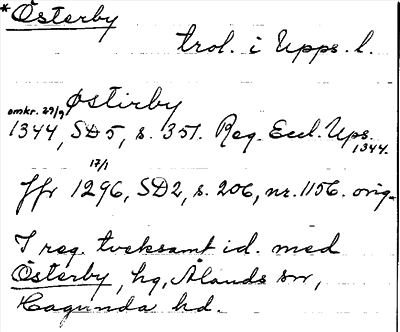 *Österby
trol. i Upps. l.
Østirby
omkr. 29/9
1344, SD5, s. 351. Reg. Eccl. Ups.
1344.
17/1
Jfr 1296, SD2, s. 206, nr. 1156. orig.
I reg. tveksamt id. med
Österby, hg, Ålands sn,
Hagunda hd.